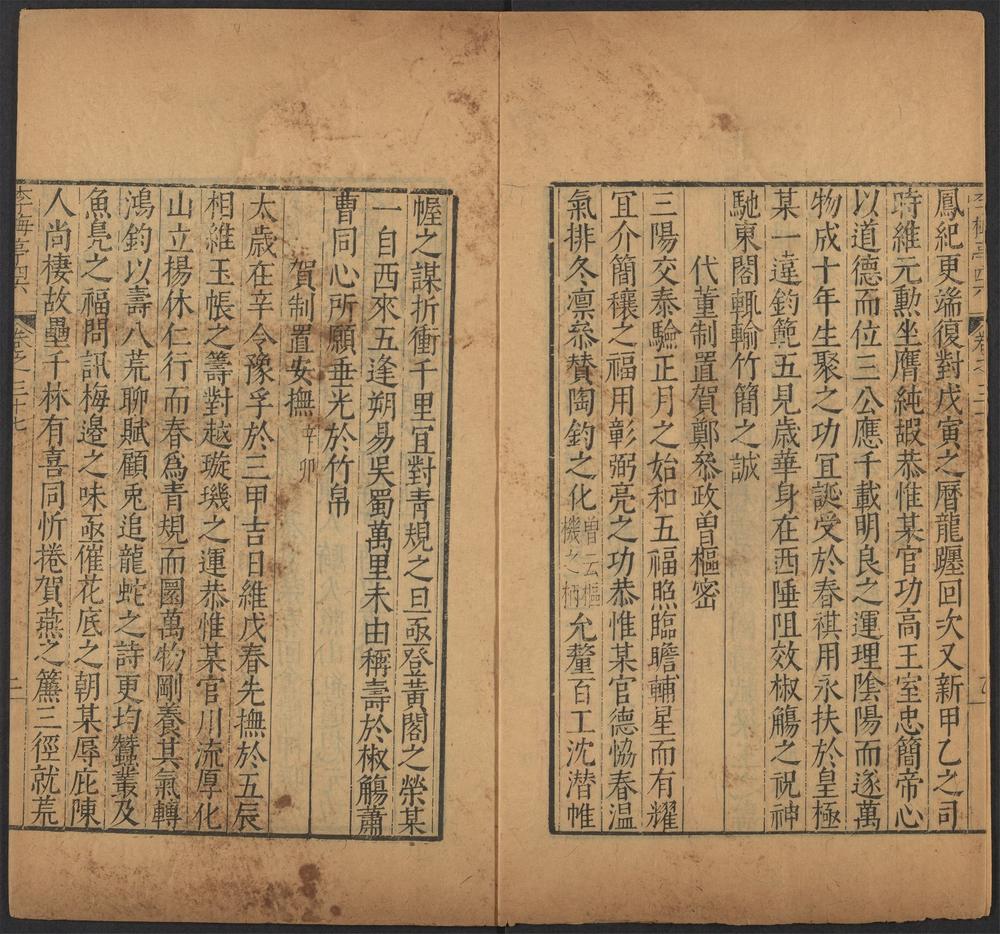 鳳紀更端復對戊寅之曆龍躔回次又新甲乙之司
時維元勳坐膺純嘏恭惟某官功高王室忠簡帝心
以道德而位三公應千載明良之運理陰陽而遂萬
物成十年生聚之功冝誕受於春祺用永扶於皇極
某一違鈞範五見歲華身在西陲阻效椒觴之祝神
馳東閣輒輸竹簡之誠
代董制置賀鄭叅政曽樞密
三陽交泰驗正月之始和五福照臨瞻輔星而有耀
冝介簡穰之福用彰弼亮之功恭惟某官德恊春温
氣排冬凛叅賛陶鈞之化曽云樞機之柄允釐百工沈潜帷
幄之謀折衝千里冝對青規之旦亟登黃閣之榮某
一自西來五逢朔易吳蜀萬里未由稱壽於椒觴蕭
曹同心所願垂光於竹帛
賀制置安撫辛卯
太歲在辛令豫孚於三甲吉日維戊春先撫於五辰
相維玉帳之籌對越璇璣之運恭惟某官川流厚化
山立揚休仁行而春爲青規而圜萬物剛養其氣轉
鴻鈞以壽八荒聊賦顧兎追龍蛇之詩更均蠶叢及
魚鳬之福問訊梅邊之味亟催花底之朝某辱庇陳
人尚棲故壘千林有喜同忻捲賀燕之簾三徑就荒
李梅亭四六 卷之三十七 二